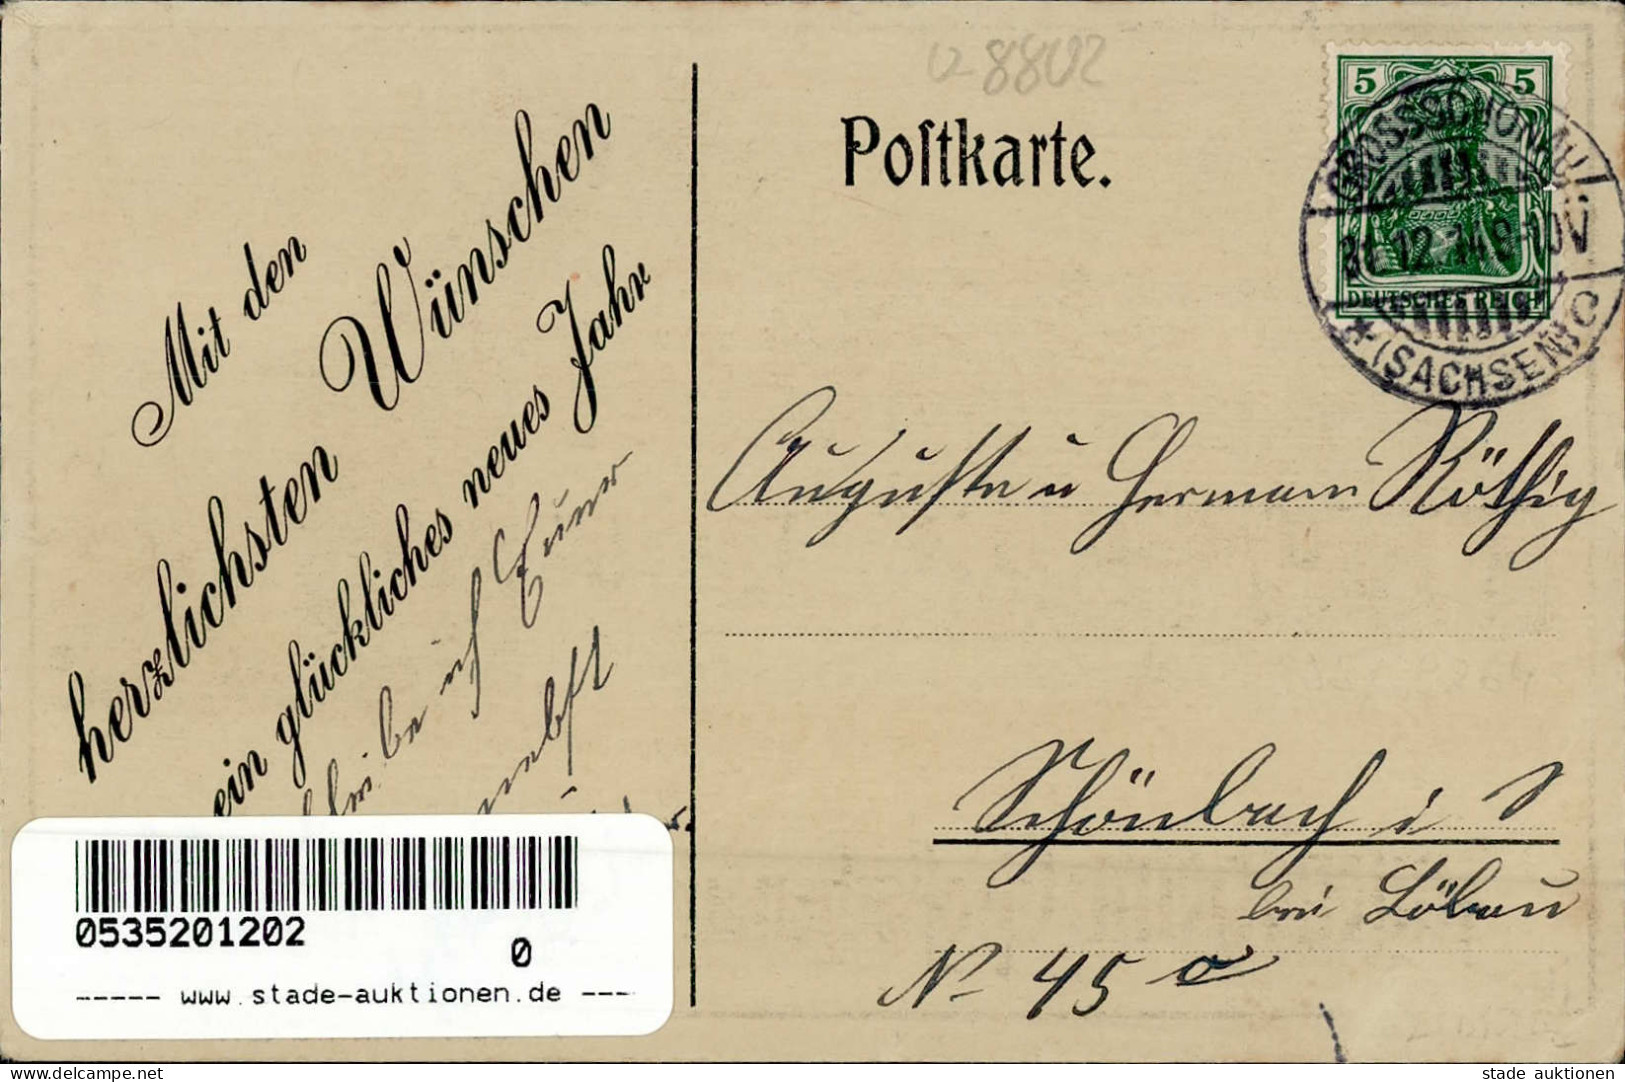 Mit den
herzlichsten Wünschen
ein glückliches neues Jahr
ich
Postkarte.
v 8802
5 5
DEUTSCHES REICH
GROSSSCHÖNAU
31.12.14.9-10V
* (SACHSEN) C
Auguste u Hermann Röthig
Schönbach i S
bei Löbau
No 45
0535201202
0
----- www.stade-auktionen.de ---
www.delcampe.net
stade auktionen